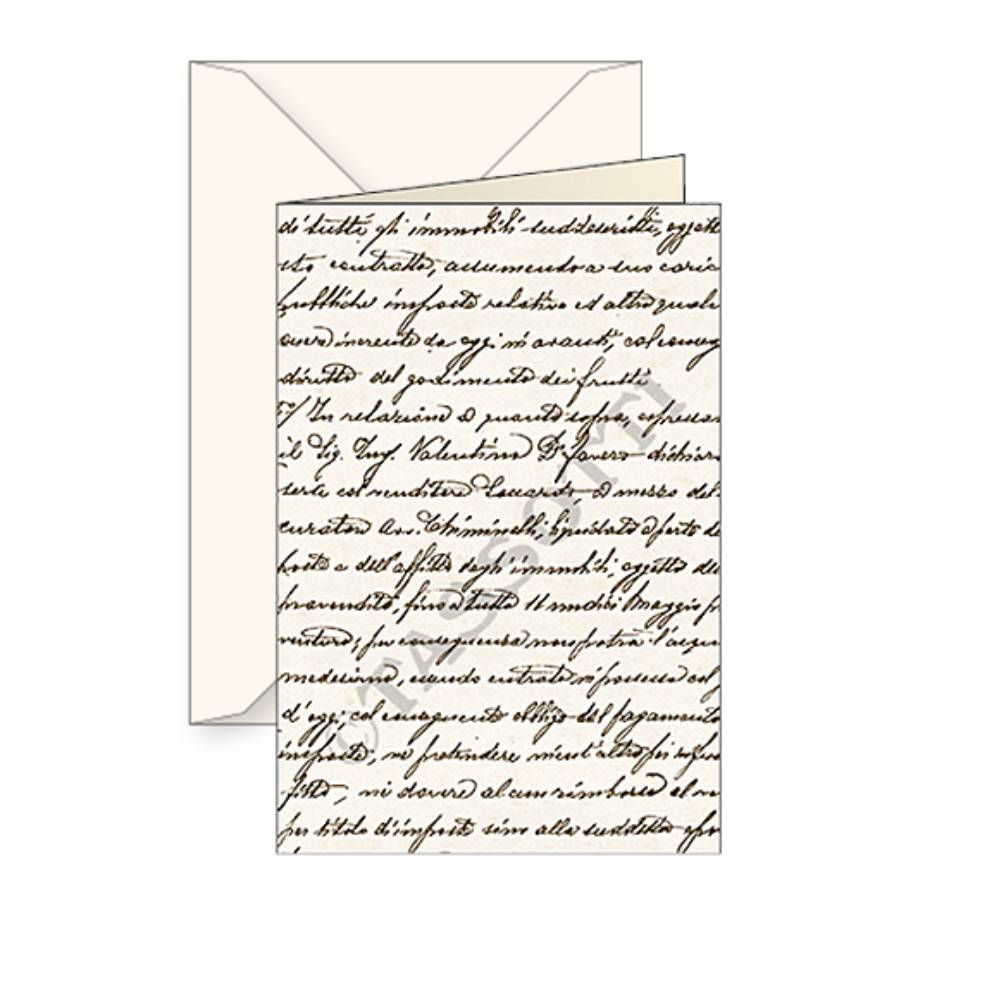 di tutti gli immobili suddescritti, oggett
sto contratto, assumendo a suo caric
pubbliche imposte relative ed altro quals
onere inerente da oggi in avanti, col conseg
diritto del godimento dei frutti
5°/ In relazione a quanto sopra, espressa
il Sig. Ing. Valentino Favero dichiara
col venditore a mezzo del
curatore Avv. Chiminelli, liquidato a parte de
e dell'affitto degli immobili, oggetto de
fino a tutto 11 undici Maggio p
venturo; per conseguenza non potrà l'acqui
medesimo, essendo entrato in possesso col
d'oggi, col conseguente obbligo del pagamento
imposte, ne pretendere nient'altro per
fitto, ne dovere alcun rimborso al ve
per titolo d'imposte sino alla suddetta
©TASSOTTI